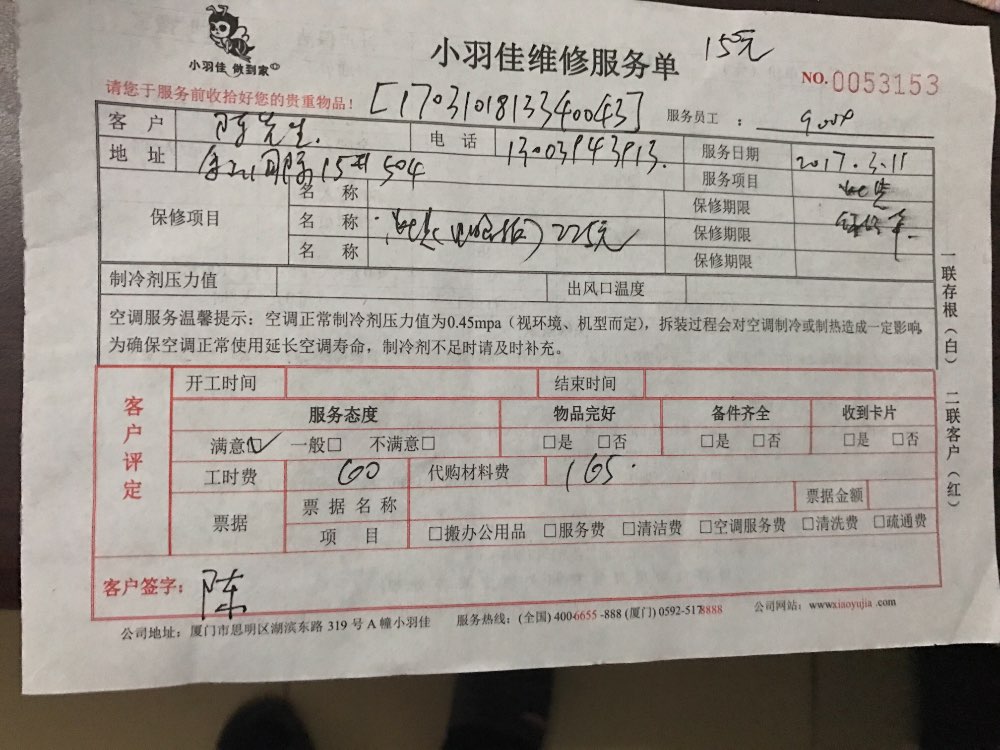 小羽佳 做到家
小羽佳维修服务单
15元
NO.0053153
请您于服务前收拾好您的贵重物品!
[1703101813340043]
服务员工 :
客 户 陈先生. 电 话 13003943913. 服务日期 2017.3.11
地 址 15 504 服务项目
保修项目
名 称 保修期限
名 称 225元 保修期限
名 称 保修期限
制冷剂压力值 出风口温度
空调服务温馨提示:空调正常制冷剂压力值为0.45mpa(视环境、机型而定),拆装过程会对空调制冷或制热造成一定影响,
为确保空调正常使用延长空调寿命,制冷剂不足时请及时补充。
客户评定
开工时间 结束时间
服务态度 物品完好 备件齐全 收到卡片
满意☑ 一般□ 不满意□ □是 □否 □是 □否 □是 □否
工时费 60 代购材料费 165.
票据
票据名称 票据金额
项 目 □搬办公用品 □服务费 □清洁费 □空调服务费 □清洗费 □疏通费
客户签字: 陈
公司地址:厦门市思明区湖滨东路 319 号 A 幢小羽佳 服务热线:(全国) 400-6655 -888 (厦门) 0592-5178888 公司网站:www.xiaoyujia .com
一联存根(白) 二联客户(红)